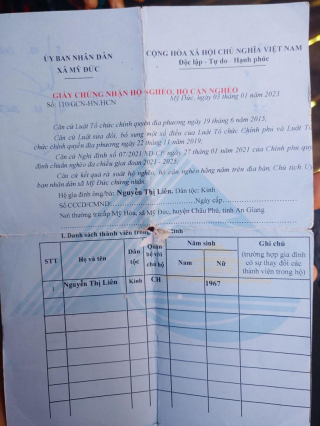 ỦY BAN NHÂN DÂN
XÃ MỸ ĐỨC
CỘNG HÒA XÃ HỘI CHỦ NGHĨA VIỆT NAM
Độc lập - Tự do - Hạnh phúc
GIẤY CHỨNG NHẬN HỘ NGHÈO, HỘ CẬN NGHÈO
Số: 110/GCN-HN.HCN
Mỹ Đức, ngày 03 tháng 01 năm 2023
Căn cứ Luật Tổ chức chính quyền địa phương ngày 19 tháng 6 năm 2015;
Căn cứ Luật sửa đổi, bổ sung một số điều của Luật Tổ chức Chính phủ và Luật Tổ
chức chính quyền địa phương ngày 22 tháng 11 năm 2019;
Căn cứ Nghị định số 07/2021/NĐ-CP ngày 27 tháng 01 năm 2021 của Chính phủ quy
định chuẩn nghèo đa chiều giai đoạn 2021 - 2025;
Căn cứ kết quả rà soát hộ nghèo, hộ cận nghèo hằng năm trên địa bàn, Chủ tịch Ủy
ban nhân dân xã Mỹ Đức chứng nhận:
Hộ gia đình ông/bà: Nguyễn Thị Liên, Dân tộc: Kinh
Số CCCD/CMND: Ngày cấp
Nơi thường trú: ấp Mỹ Hòa, xã Mỹ Đức, huyện Châu Phú, tỉnh An Giang
1. Danh sách thành viên trong đình
STT Họ và tên Dân tộc Quan hệ với chủ hộ Năm sinh Ghi chú
Nam Nữ (trường hợp gia đình
có sự thay đổi các
thành viên trong hộ)
1 Nguyễn Thị Liên Kinh CH 1967